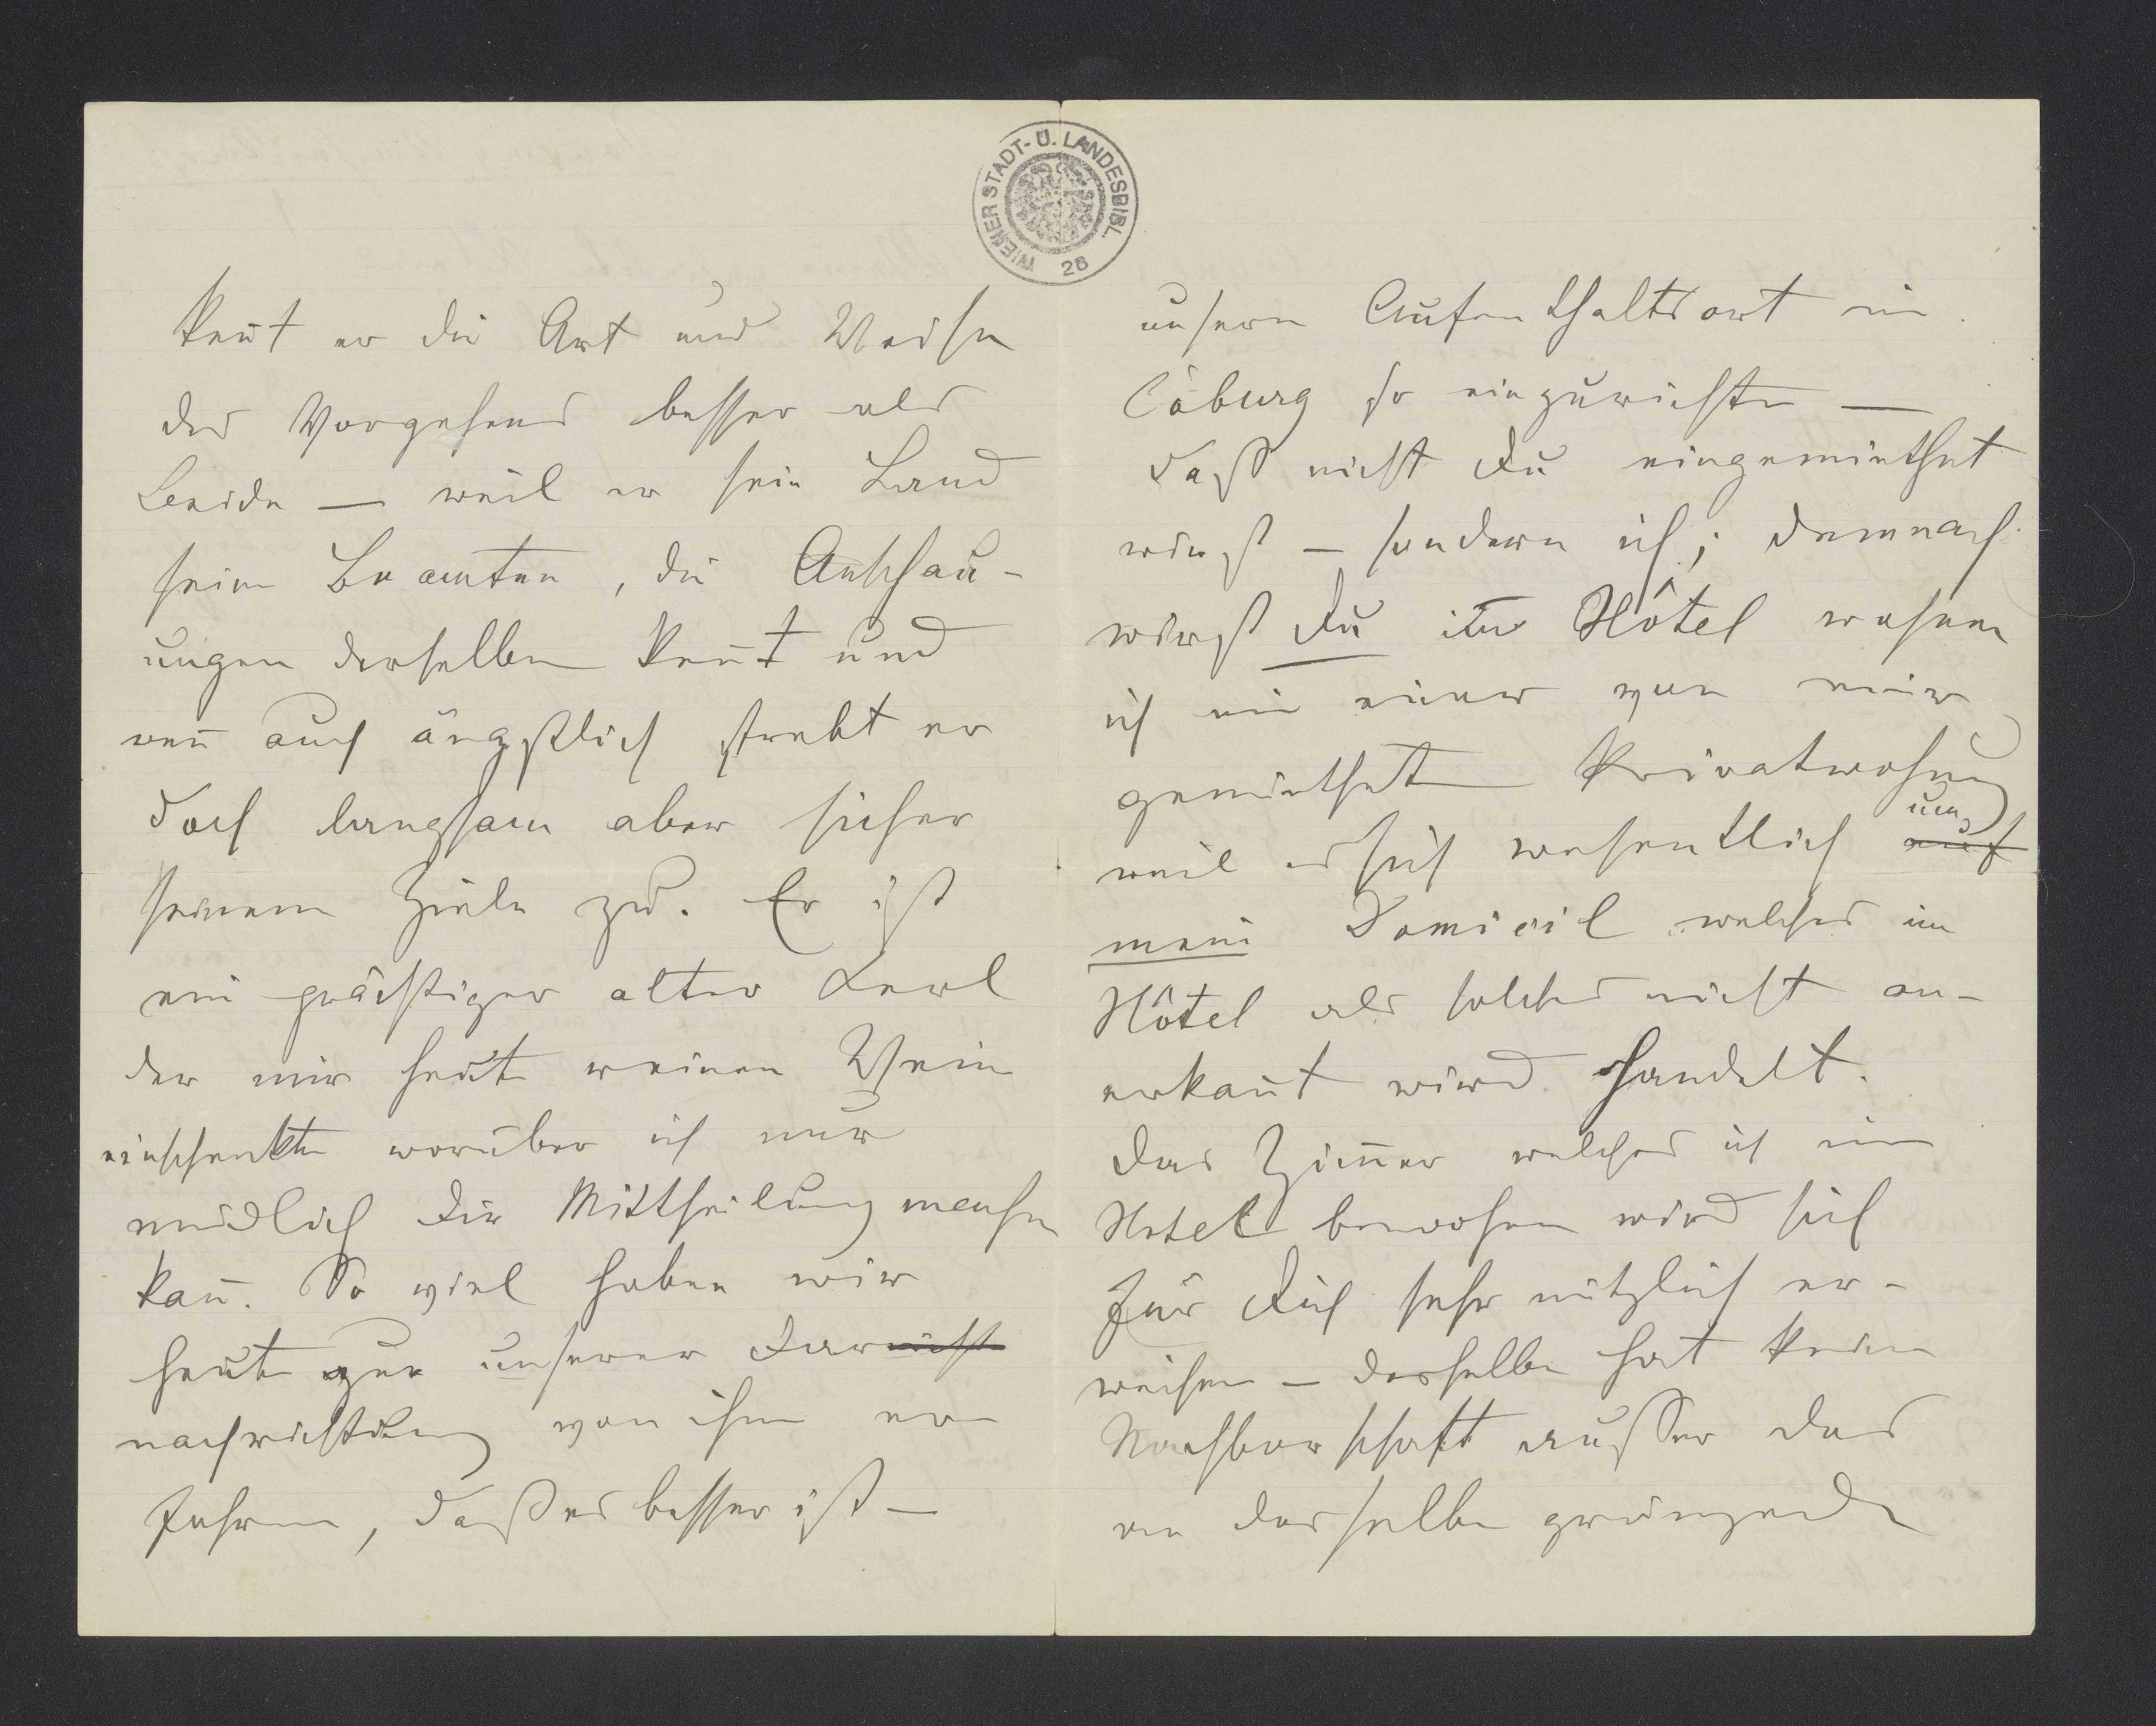 WIENER STADT- U. LANDESBIBL.
28
ken̄t er die Art und Weise
des Vorgehens besser als
Beide — weil er sein Land
seine Beamten, die Anschau-
ungen derselben ken̄t und
wen̄ auch ängstlich strebt er
doch langsam aber sicher
seinem Ziele zu. Er ist
ein prächtiger alter Kerl
der mir heute reinen Wein
einschenkte worüber ich nur
mündlich Dir Mittheilung machen
kan̄. So viel haben wir
heute zur unserer Darnicht
nachrichtung von ihm er-
fahren, daß es besser ist —
unsern Aufenthaltsort in
Coburg so einzurichten —
daß nicht Du eingemiethet
wirst — sondern ich; demnach
wirst Du im Hôtel wohnen
ich in einer von mir
gemietheten Privatwohnung
weil es sich wesentlich auf um
mein Domicil welches im
Hôtel als solches nicht an-
erkan̄t wird handelt.
Das Zim̄er welches ich im
Hotel bewohne wird sich
für Dich sehr nützlich er-
weisen — dasselbe hat keine
Nachbarschaft außer das
an dasselbe grenzende